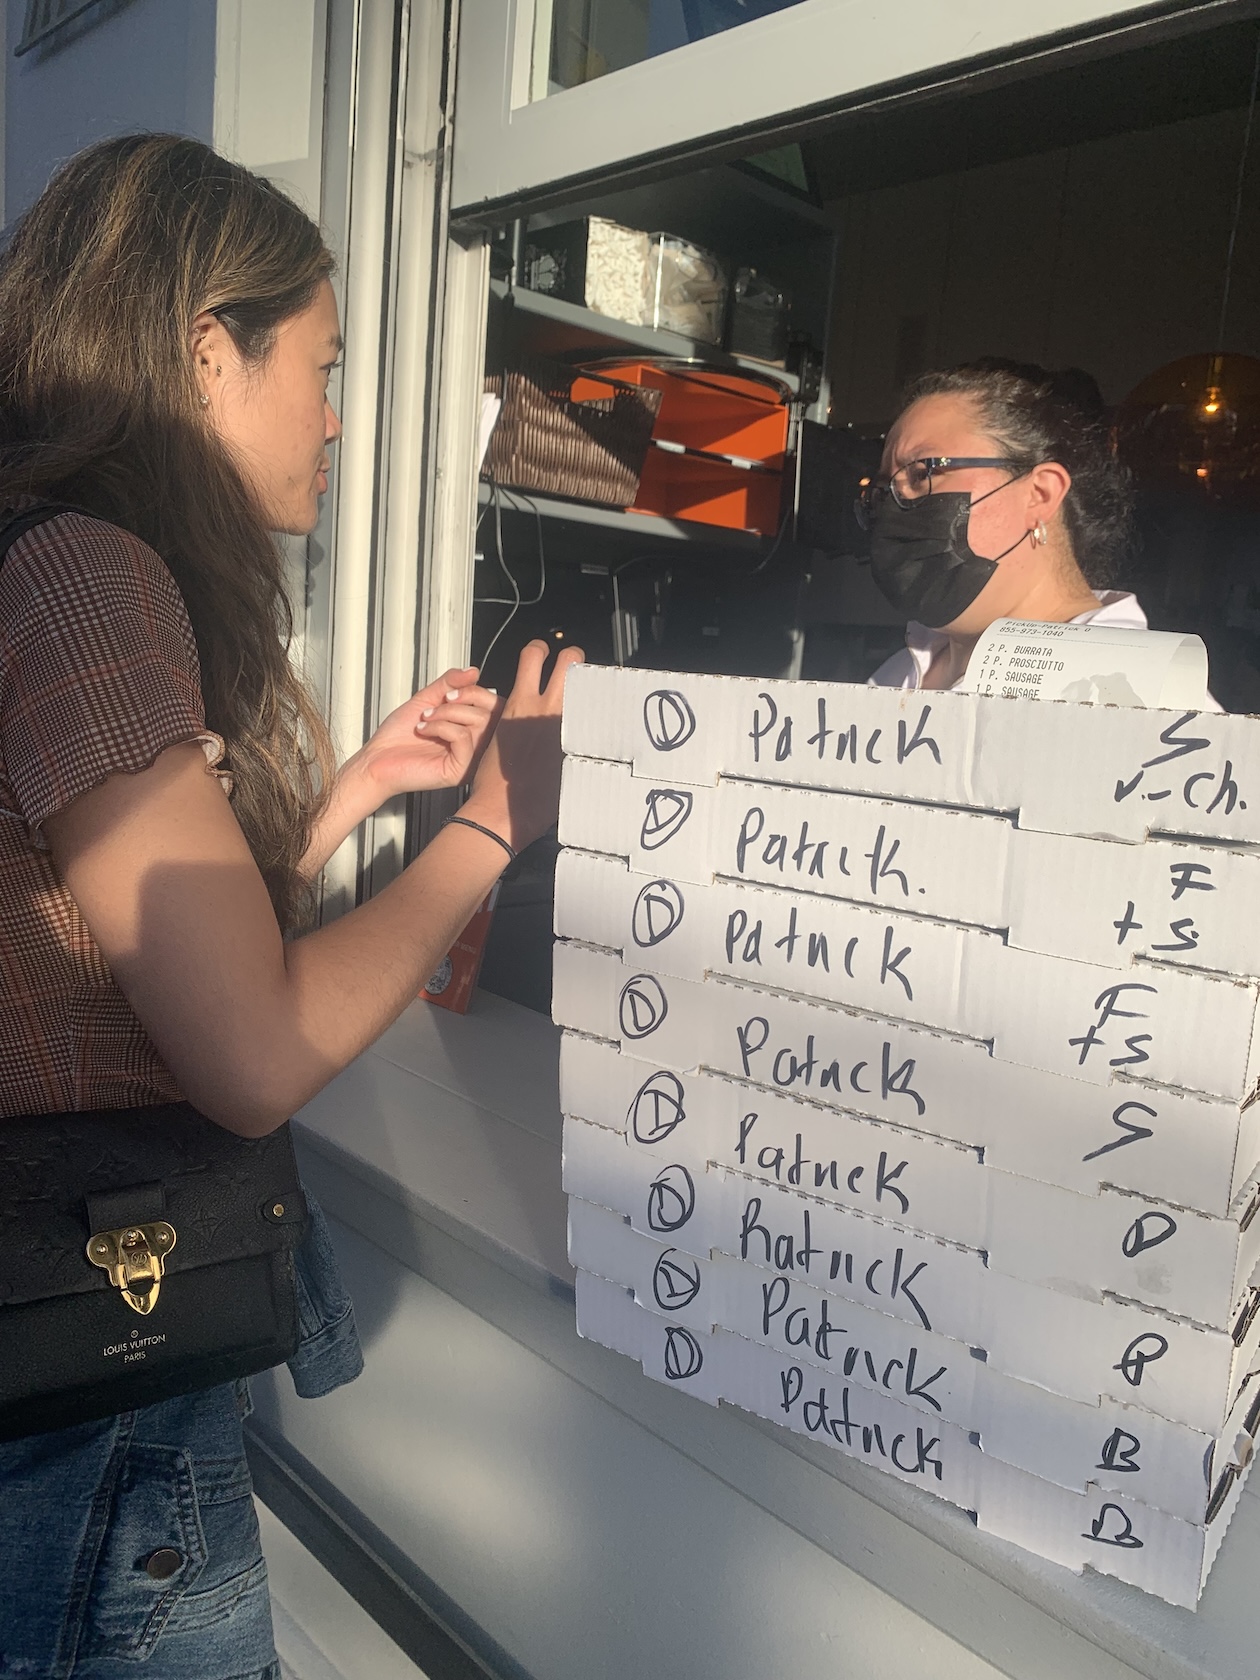 Pickup-Patrick D
855-973-1040
2 P. BURRATA
2 P. PROSCIUTTO
1 P. SAUSAGE
1 P. SAUSAGE
D Patrick S
✓-Ch.
D Patrick. F
+ S
D Patrick F
+ S
D Patrick S
D Patrick P
D Patrick P
D Patrick B
D Patrick B
LOUIS VUITTON
PARIS